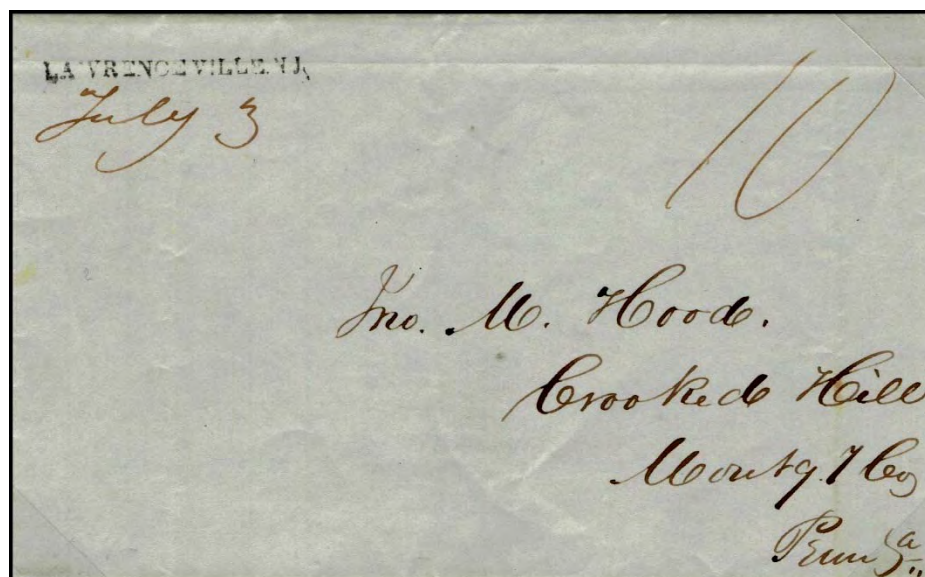 LAWRENCEVILLE N.J.
July 3
10
Jno. M. Hood.
Crooked Hill
Montg. Co
Penn a